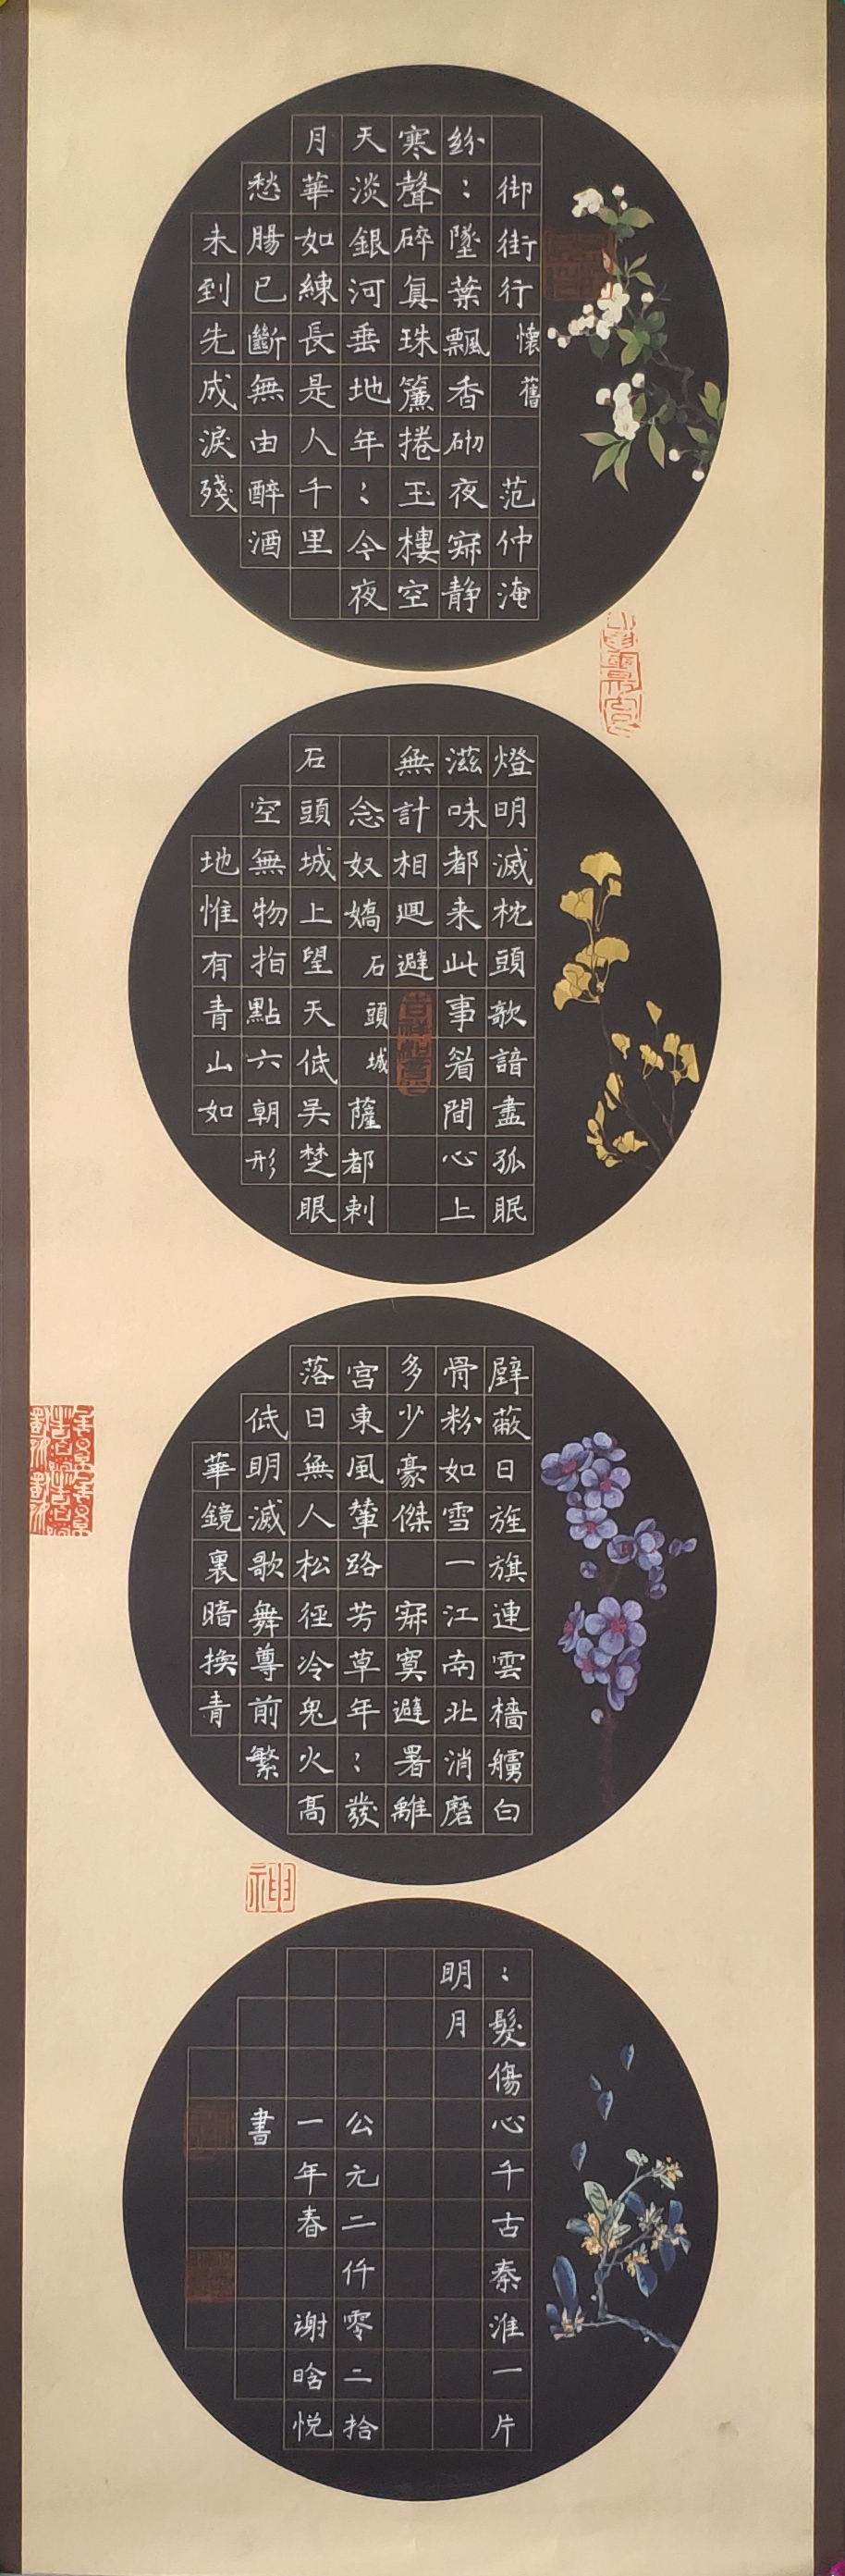 御街行 懷舊 范仲淹
紛：墜葉飄香砌夜寂静
寒聲碎真珠簾捲玉樓空
天淡銀河垂地年：今夜
月華如練長是人千里
愁腸已斷無由醉酒
未到先成淚殘
燈明滅枕頭欹諳盡孤眠
滋味都来此事眉間心上
無計相迴避
念奴嬌 石頭城 薩都剌
石頭城上望天低吴楚眼
空無物指點六朝形
地惟有青山如
壁蔽日旌旗連雲檣艣白
骨粉如雪一江南北消磨
多少豪傑 寂寞避暑離
宫東風輦路芳草年：發
落日無人松徑冷鬼火高
低明滅歌舞尊前繁
華鏡裏暗換青
：髮傷心千古秦淮一片
明月
公元二仟零二拾
一年春 谢晗悦
書